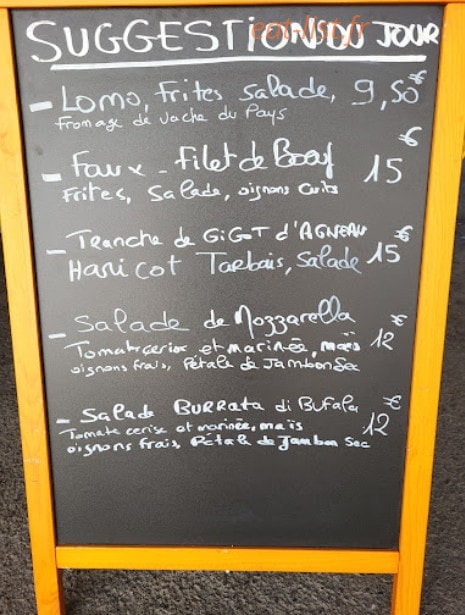 eat-list.fr
SUGGESTION DU JOUR
- Lomo, frites salade, 9,50€
fromage de vache du Pays
- Faux-Filet de Boeuf 15€
Frites, Salade, oignons cuits
- Tranche de GiGoT d'AGNEAU 15€
HaRicot Tarbais, Salade
- Salade de Mozzarella 12€
Tomate cerise et marinée, maïs
oignons frais, Pétale de Jambon Sec
- Salade BURRata di Bufala 12€
Tomate cerise et marinée, maïs
oignons frais, Pétale de Jambon Sec